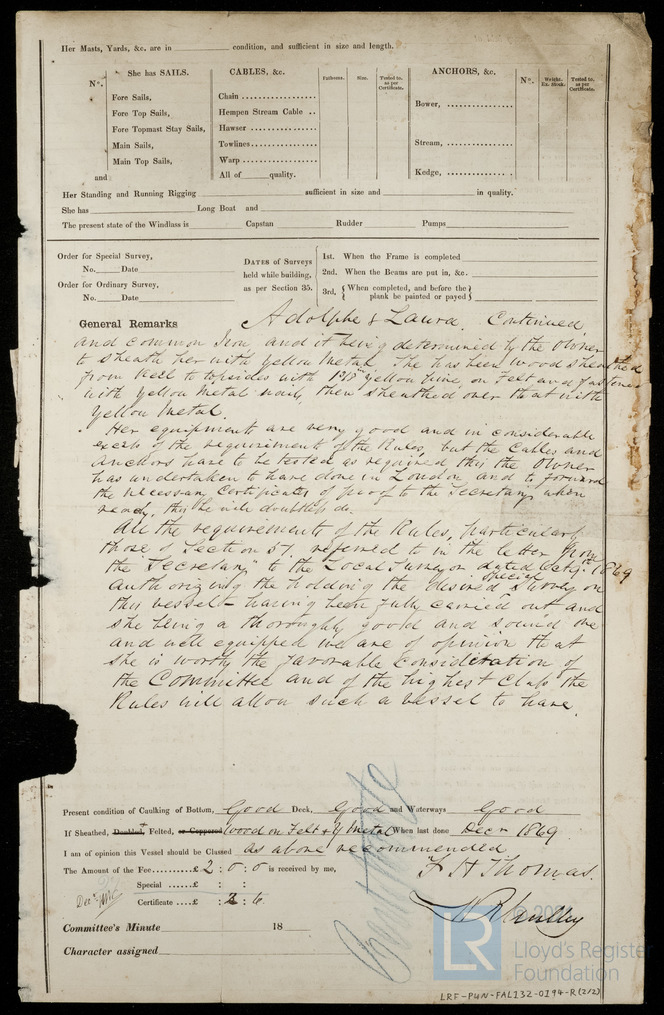 Her Masts, Yards, &c. are in ______ condition, and sufficient in size and length.
She has SAILS.
CABLES, &c.
Fathoms.
Size.
Tested to, as per Certificate.
ANCHORS, &c.
No.
Weight. Ex. Stock.
Tested to, as per Certificate.
No.
Fore Sails,
Fore Top Sails,
Fore Topmast Stay Sails,
Main Sails,
Main Top Sails,
and
Chain
Hempen Stream Cable
Hawser
Towlines
Warp
All of ____ quality.
Bower,
Stream,
Kedge,
Her Standing and Running Rigging ______ sufficient in size and ______ in quality.
She has ______ Long Boat and ______
The present state of the Windlass is ______ Capstan ______ Rudder ______ Pumps ______
Order for Special Survey,
No. ____ Date ____
Order for Ordinary Survey,
No. ____ Date ____
DATES of Surveys
held while building,
as per Section 35.
1st. When the Frame is completed
2nd. When the Beams are put in, &c.
3rd. { When completed, and before the plank be painted or payed }
General Remarks Adolphe & Laura. Continued.
and common Iron and it being determined by the Owner
to sheath her with Yellow Metal. She has been wood sheathed
from keel to topsides with 1 1/8" Yellow Pine, on Felt and fastened
with Yellow Metal nails, then sheathed over that with
Yellow Metal.
Her equipments are very good and in considerable
excess of the requirement of the Rules, but the Cables and
Anchors have to be tested as required this the Owner
has undertaken to have done in London and to forward
the necessary Certificates of proof to the Secretary when
ready, this he will doubtless do.
All the requirements of the Rules, particularly
those of Section 57. referred to in the letter from
the Secretary to the Local Surveyor dated Oct 9th 1869
authorizing the holding the desired special survey on
this vessel - having been fully carried out and
she being a thoroughly good and sound one
and well equipped we are of opinion that
she is worthy the favorable consideration of
the Committee and of the highest class the
Rules will allow such a vessel to have.
Present condition of Caulking of Bottom, Good Deck, Good and Waterways Good
If Sheathed, Doubled, Felted, or Coppered Wood on Felt & Y Metal When last done Decr 1869
I am of opinion this Vessel should be Classed as above recommended
The Amount of the Fee......£ 2 : 0 : 0 is received by me,
F H Thomas.
Special ......£ : :
Certificate ....£ : 2 : 6
Committee's Minute ______ 18
Character assigned
Lloyd's Register
Foundation
LR
LRF-PUN-FAL132-0194-R (2/2)